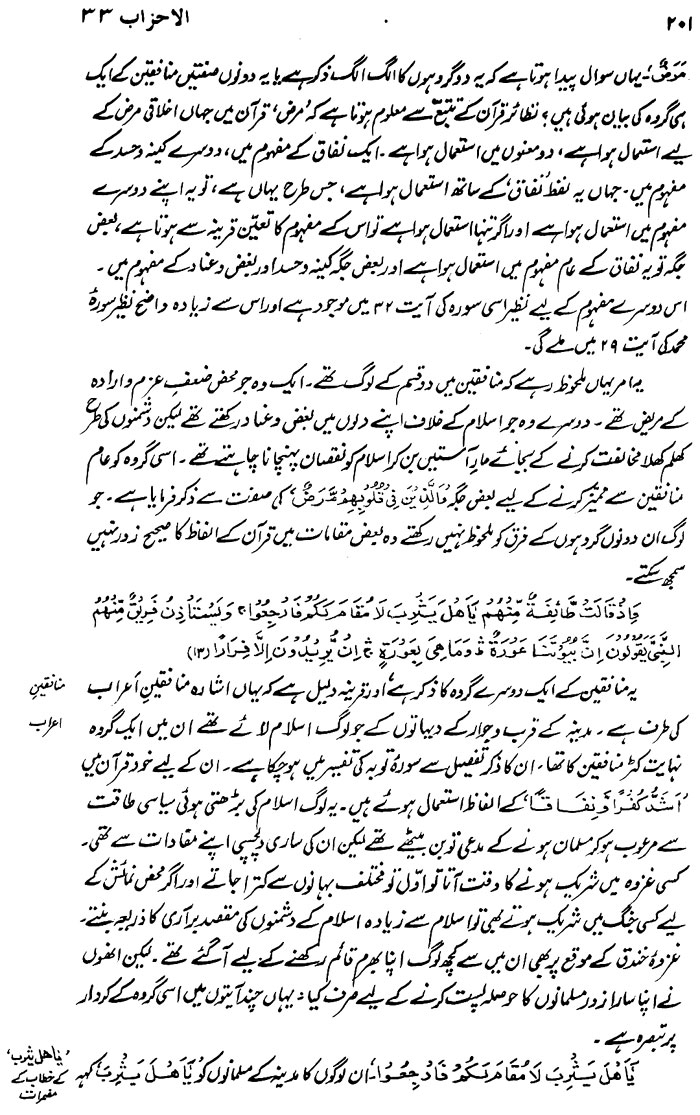 ۲۰۱
الاحزاب ۳۳
مَرَضٌ‘۔ یہاں سوال پیدا ہوتا ہے کہ یہ دو گروہوں کا الگ الگ ذکر ہے یا یہ دونوں صفتیں منافقین کے ایک
ہی گروہ کی بیان ہوئی ہیں؟ نظائر قرآن کے تتبع سے معلوم ہوتا ہے کہ ’مرض‘ قرآن میں جہاں اخلاقی مرض کے
لیے استعمال ہوا ہے، دو معنوں میں استعمال ہوا ہے۔ ایک نفاق کے مفہوم میں، دوسرے کینہ و حسد کے
مفہوم میں۔ جہاں یہ لفظ ’نفاق‘ کے ساتھ استعمال ہوا ہے، جس طرح یہاں ہے، تو یہ اپنے دوسرے
مفہوم میں استعمال ہوا ہے اور اگر تنہا استعمال ہوا ہے تو اس کے مفہوم کا تعیّن قرینہ سے ہوتا ہے، بعض
جگہ تو یہ نفاق کے عام مفہوم میں استعمال ہوا ہے اور بعض جگہ کینہ و حسد اور بغض و عناد کے مفہوم میں۔
اس دوسرے مفہوم کے لیے نظیر اسی سورہ کی آیت ۳۲ میں موجود ہے اور اس سے زیادہ واضح نظیر سورۂ
محمد کی آیت ۲۹ میں ملے گی۔
یہ امر یہاں ملحوظ رہے کہ منافقین میں دو قسم کے لوگ تھے۔ ایک وہ جو محض ضعفِ عزم و ارادہ
کے مریض تھے۔ دوسرے وہ جو اسلام کے خلاف اپنے دلوں میں بغض و عناد رکھتے تھے لیکن دشمنوں کی طرح
کھلم کھلا مخالفت کرنے کے بجائے مارِ آستیں بن کر اسلام کو نقصان پہنچانا چاہتے تھے۔ اسی گروہ کو عام
منافقین سے ممیز کرنے کے لیے بعض جگہ ’وَالَّذِيْنَ فِيْ قُلُوْبِهِمْ مَّرَضٌ‘ کی صفت سے ذکر فرمایا ہے۔ جو
لوگ ان دونوں گروہوں کے فرق کو ملحوظ نہیں رکھتے وہ بعض مقامات میں قرآن کے الفاظ کا صحیح زور نہیں
سمجھ سکتے۔
وَاِذْ قَالَتْ طَّآئِفَةٌ مِّنْهُمْ يٰٓاَهْلَ يَثْرِبَ لَا مُقَامَ لَكُمْ فَارْجِعُوْا ۚ وَيَسْتَاْذِنُ فَرِيْقٌ مِّنْهُمُ
النَّبِيَّ يَقُوْلُوْنَ اِنَّ بُيُوْتَنَا عَوْرَةٌ ۛ وَمَا هِيَ بِعَوْرَةٍ ۛ اِنْ يُّرِيْدُوْنَ اِلَّا فِرَارًا (۱۳)
یہ منافقین کے ایک دوسرے گروہ کا ذکر ہے، اور قرینہ دلیل ہے کہ یہاں اشارہ منافقینِ اَعراب
منافقینِ
کی طرف ہے۔ مدینہ کے قرب و جوار کے دیہاتوں کے جو لوگ اسلام لائے تھے ان میں ایک گروہ
اعراب
نہایت کٹر منافقین کا تھا۔ ان کا ذکر تفصیل سے سورۂ توبہ کی تفسیر میں ہو چکا ہے۔ ان کے لیے خود قرآن میں
’اَشَدُّ كُفْرًا وَّنِفَاقًا‘ کے الفاظ استعمال ہوئے ہیں۔ یہ لوگ اسلام کی بڑھتی ہوئی سیاسی طاقت
سے مرعوب ہو کر مسلمان ہونے کے مدعی تو بن بیٹھے تھے لیکن ان کی ساری دلچسپی اپنے مفادات سے تھی۔
کسی غزوہ میں شریک ہونے کا وقت آتا تو اوّل تو مختلف بہانوں سے کترا جاتے اور اگر محض نمائش کے
لیے کسی جنگ میں شریک ہوتے بھی تو اسلام سے زیادہ اسلام کے دشمنوں کی مقصد برآری کا ذریعہ بنتے۔
غزوۂ خندق کے موقع پر بھی ان میں سے کچھ لوگ اپنا بھرم قائم رکھنے کے لیے آ گئے تھے۔ لیکن انھوں
نے اپنا سارا زور مسلمانوں کا حوصلہ پست کرنے کے لیے صرف کیا۔ یہاں چند آیتوں میں اسی گروہ کے کردار
پر تبصرہ ہے۔
’يٰٓاَهْلَ يَثْرِبَ لَا مُقَامَ لَكُمْ فَارْجِعُوْا‘۔ ان لوگوں کا مدینہ کے مسلمانوں کو ’يٰٓاَهْلَ يَثْرِبَ‘ کہہ
’یاَھل یثرب‘
کے خطاب کے
مضمرات